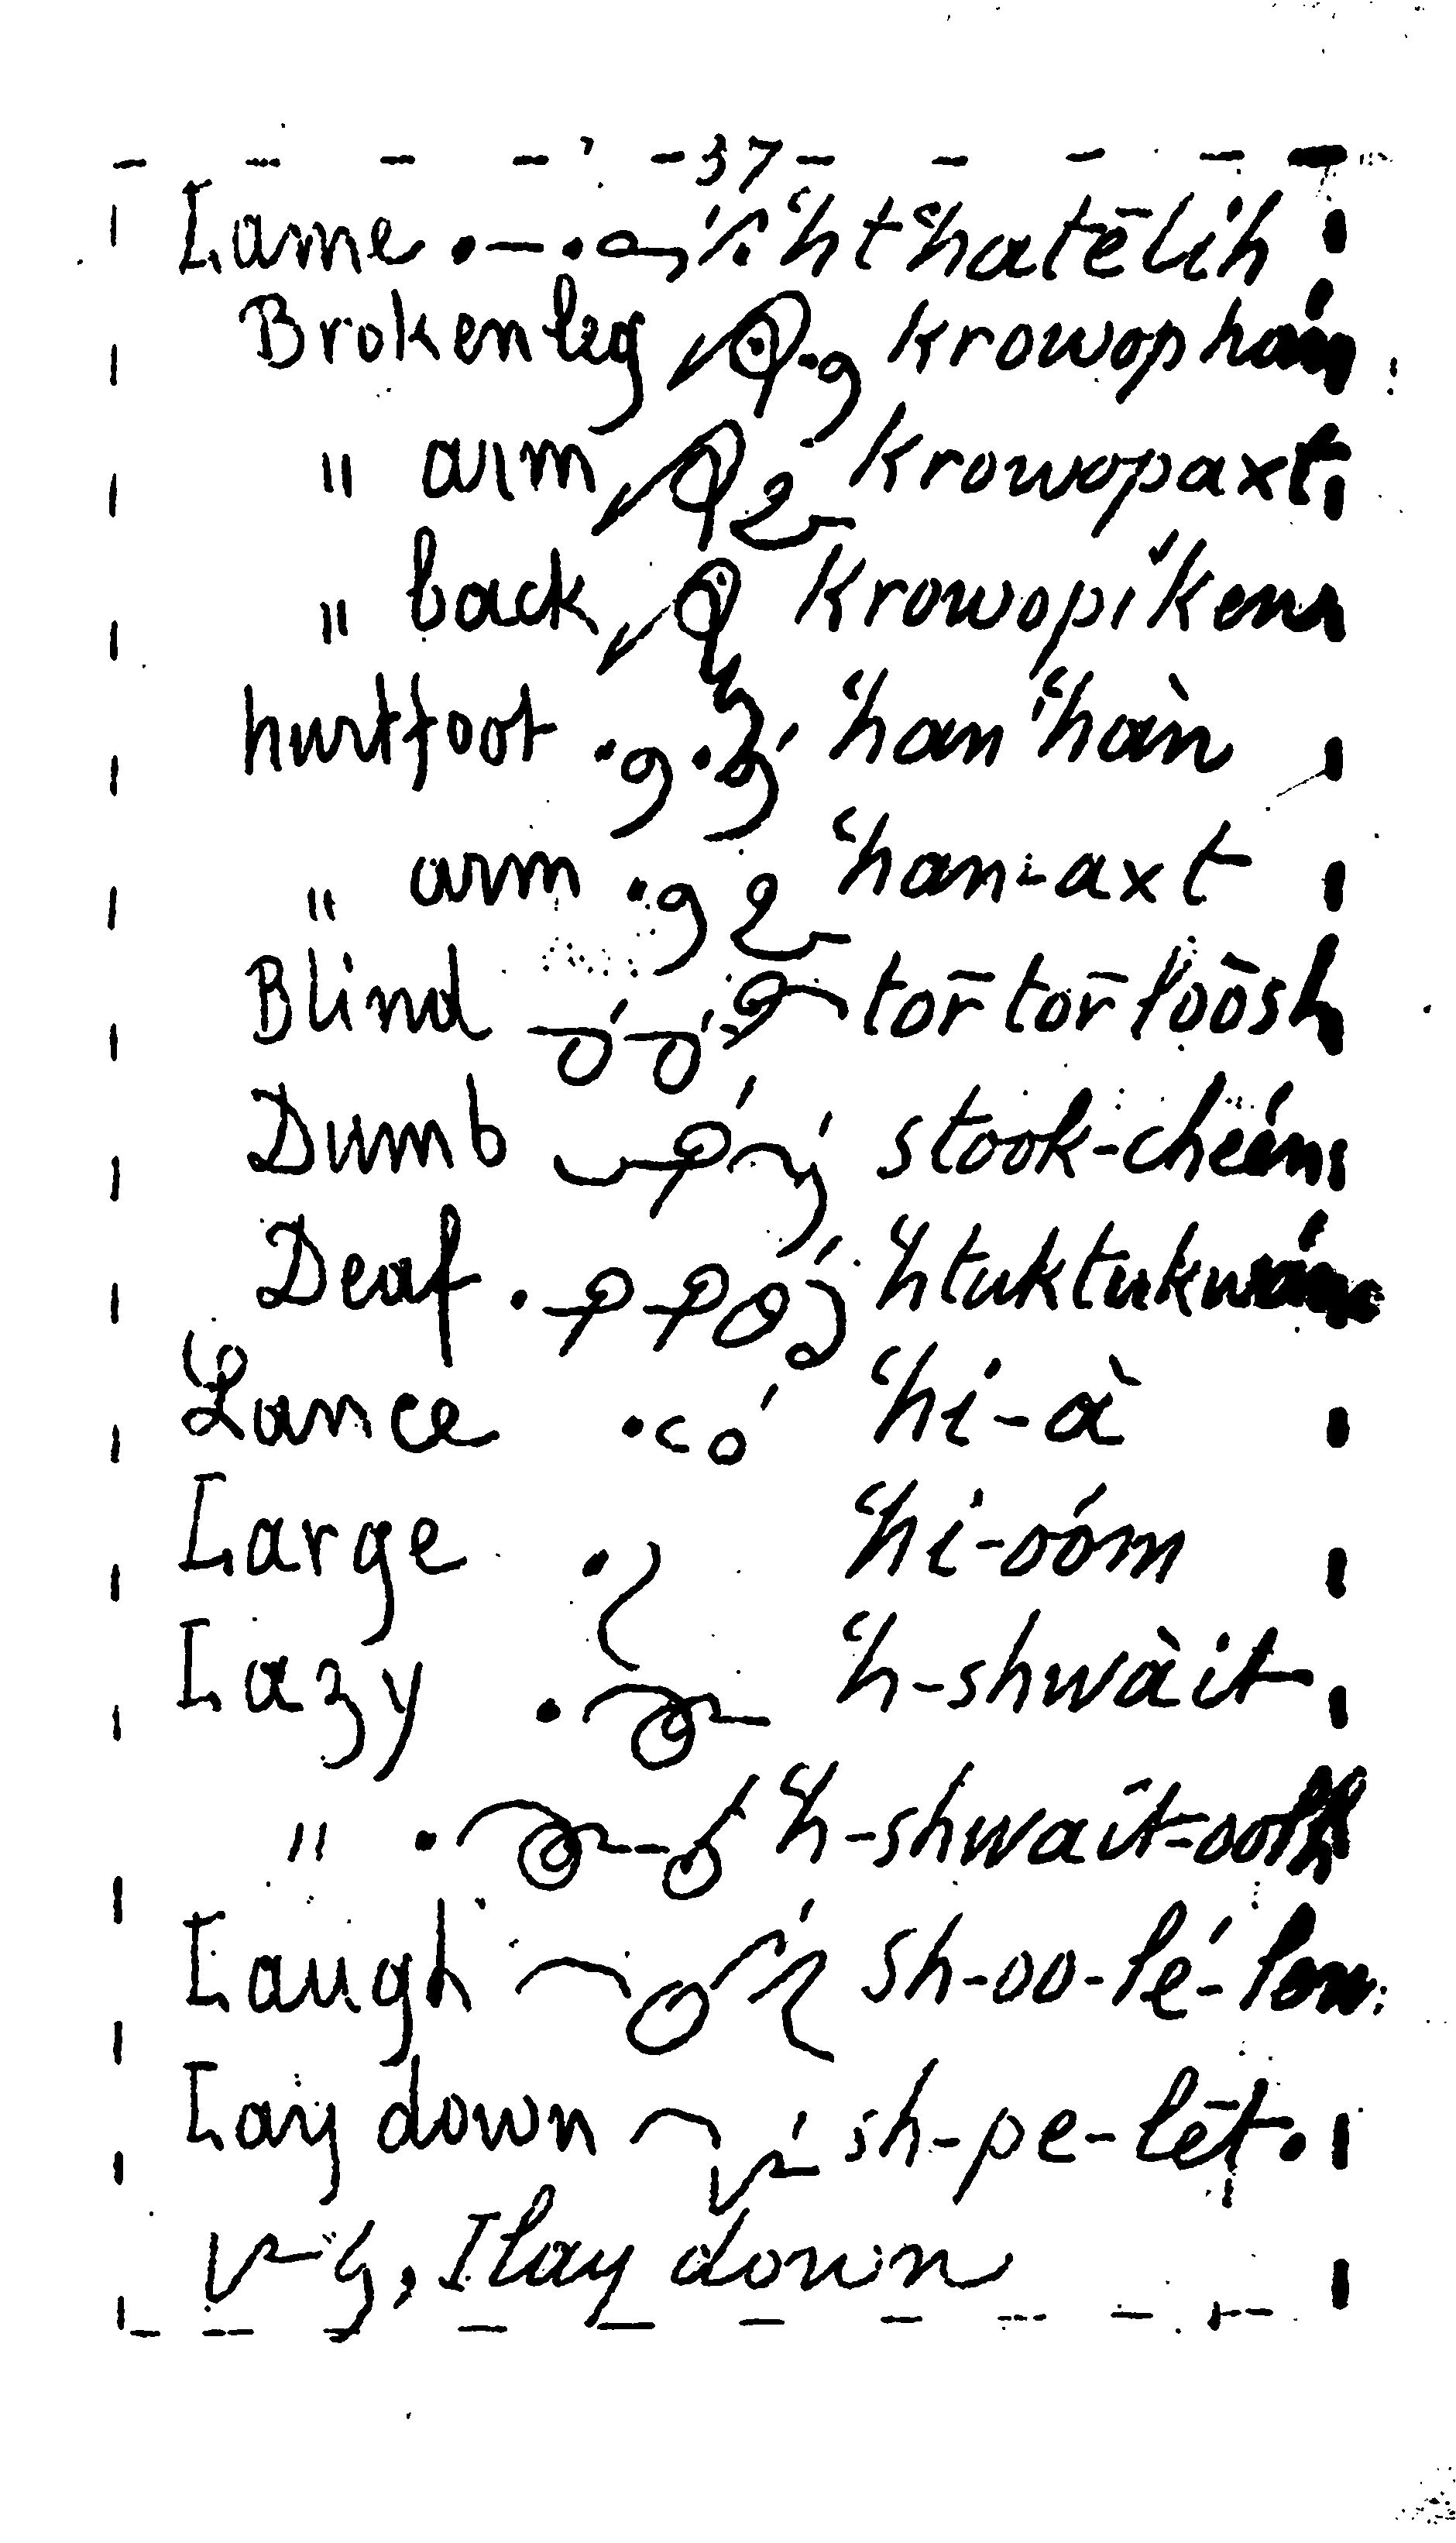 37
Lame ʽht ʽhatēlih
Broken leg krowophán
" arm krowopaxt
" back krowopíken
hurt foot ʽhan ʽhàn
" arm ʽhan-axt
Blind tor̄ tor̄ lōōsh
Dumb stook-cheén
Deaf ʽhtuktuk
Lance ʽhi-à
Large ʽhi-oóm
Lazy ʽh-shwàit
" ʽh-shwait-ooth
Laugh sh-oo-lé-
Lay down sh-pe-lēt.
, I lay down